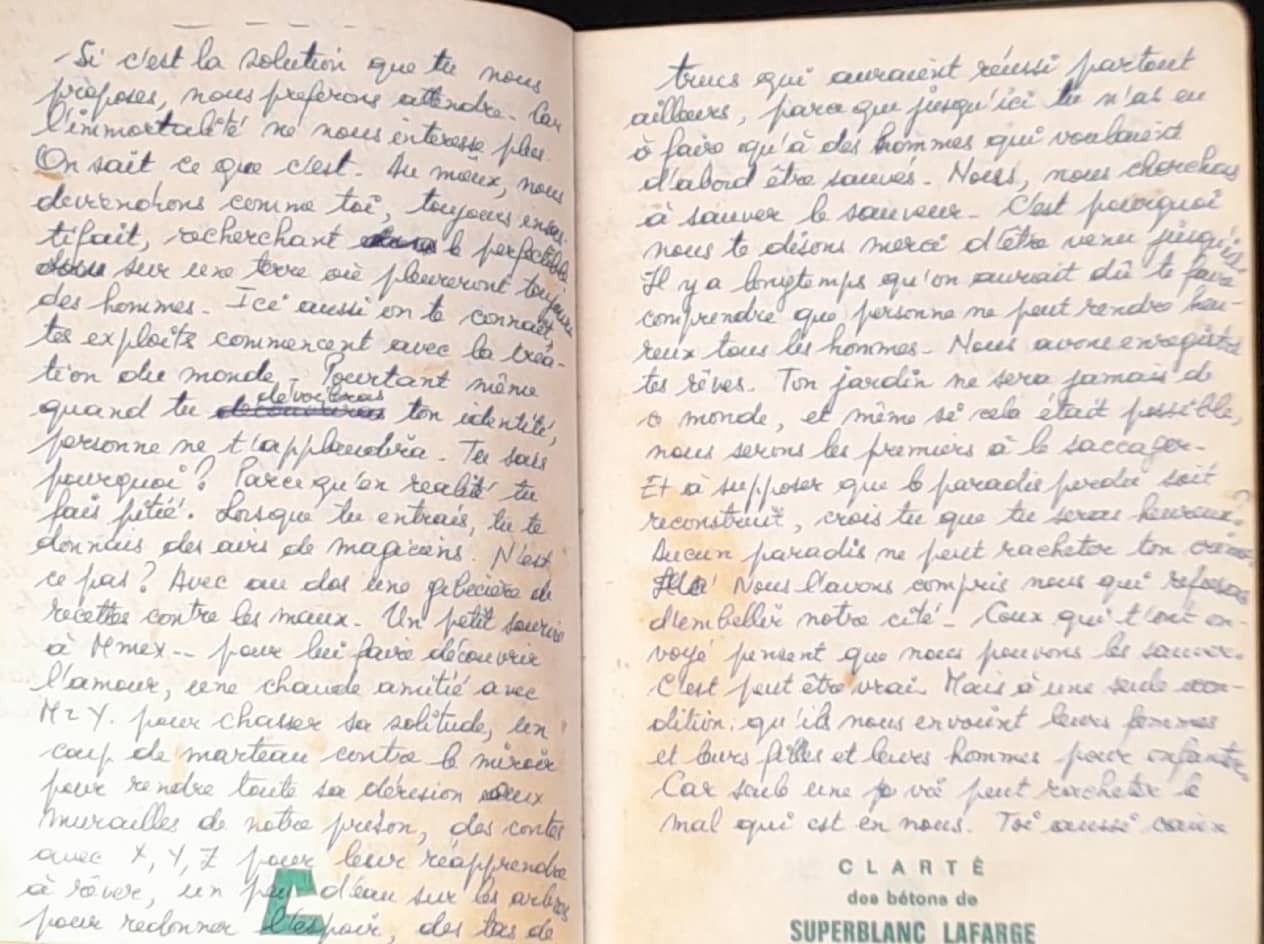 - Si c'est la solution que tu nous
proposes, nous preferons attendre. Car
l'immortalité ne nous interesse plus.
On sait ce que c'est. Au mieux, nous
deviendrons comme toi, toujours insa-
tifait, recherchant le perfectible
sur une terre où pleureront toujours
des hommes. Ici aussi on te connait,
tes exploits commencent avec la créa-
tion du monde. Pourtant même
quand tu devoileras ton identité,
personne ne t'applaudira. Tu sais
pourquoi ? Parce qu'en realité tu
fais pitié. Lorsque tu entrais, tu te
donnais des airs de magiciens. N'est
ce pas ? Avec au dos une gibecière de
recettes contre les maux. Un petit sourire
à Mme X -- pour lui faire découvrir
l'amour, une chaude amitié avec
Mr Y. pour chasser sa solitude, un
coup de marteau contre le miroir
pour rendre toute sa dérision aux
murailles de notre prison, des contes
avec X, Y, Z pour leur réapprendre
à rêver, un peu d'eau sur les arbres
pour redonner l'espoir, des tas de
trucs qui auraient réussi partout
ailleurs, parce que jusqu'ici tu n'as eu
à faire qu'à des hommes qui voulaient
d'abord être sauvés. Nous, nous cherchons
à sauver le sauveur. C'est pourquoi
nous te disons merci d'être venu jusqu'ici.
Il y a longtemps qu'on aurait dû te faire
comprendre que personne ne peut rendre heu-
reux tous les hommes. Nous avons enregistré
tes rêves. Ton jardin ne sera jamais de
ce monde, et même si cela était possible,
nous serons les premiers à le saccager.
Et à supposer que le paradis perdu soit
reconstruit, crois tu que tu seras heureux ?
Aucun paradis ne peut racheter ton crime.
Nous l'avons compris nous qui refusons
d'embellir notre cité. Ceux qui t'ont en-
voyé pensent que nous pouvons les sauver.
C'est peut être vrai. Mais à une seule con-
dition : qu'ils nous envoient leurs femmes
et leurs filles et leurs hommes pour enfanter.
Car seule une vie peut racheter le
mal qui est en nous. Toi aussi
CLARTÉ
des bétons de
SUPERBLANC LAFARGE